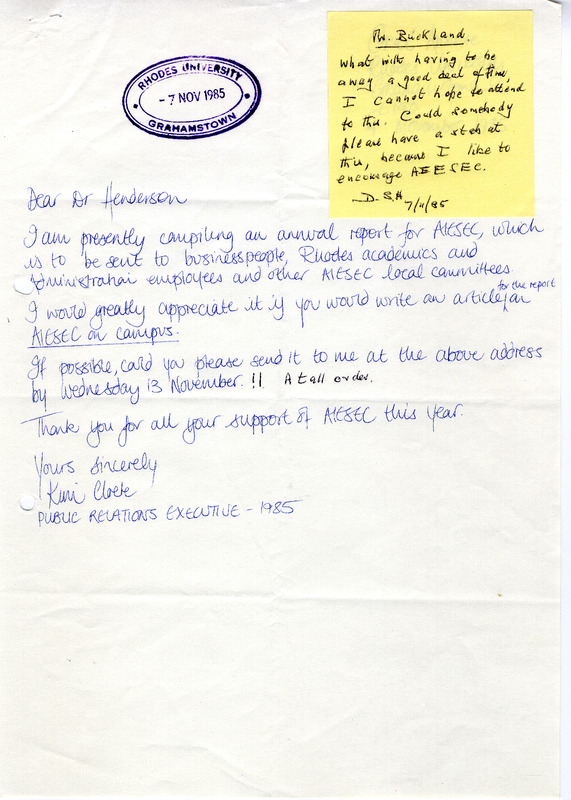 RHODES UNIVERSITY
- 7 NOV 1985
GRAHAMSTOWN
Mr. Buckland.
What with having to be
away a good deal of time,
I cannot hope to attend
to this. Could somebody
please have a stab at
this, because I like to
encourage AIESEC.
D.S.H
7/11/85
Dear Dr Henderson
I am presently compiling an annual report for AIESEC, which
is to be sent to businesspeople, Rhodes academics and
administration employees and other AIESEC local committees.
for the report
I would greatly appreciate it if you would write an article, on
AIESEC on campus.
If possible, could you please send it to me at the above address
by Wednesday 13 November. !! A tall order.
Thank you for all your support of AIESEC this year.
Yours sincerely
Kim Cloete
PUBLIC RELATIONS EXECUTIVE - 1985